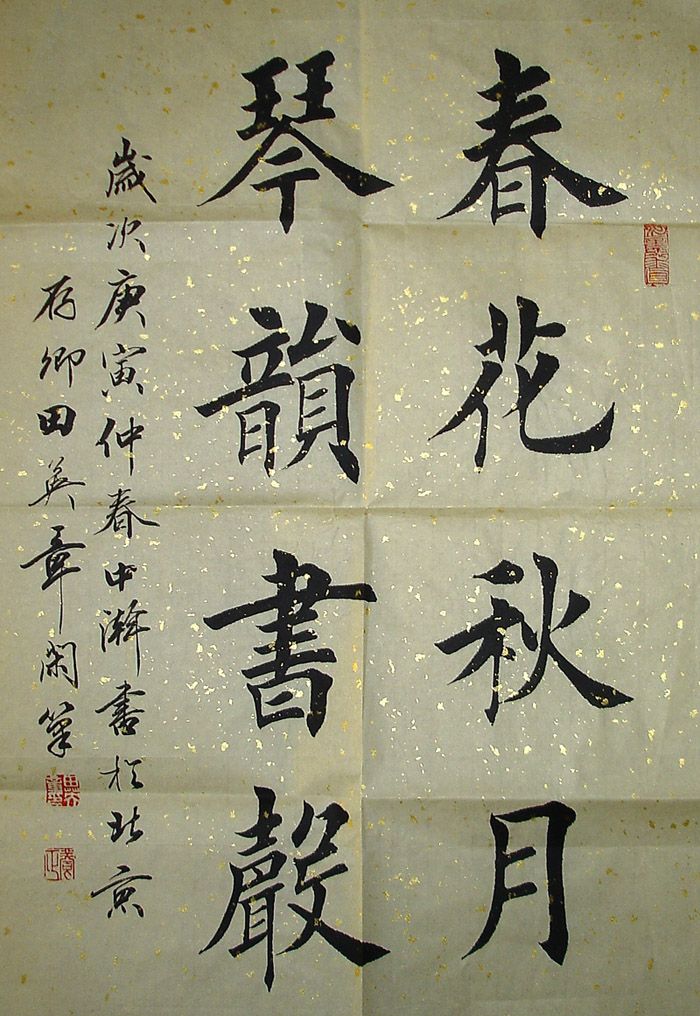 春花秋月
琴韻書聲
歲次庚寅仲春中瀚書於北京
存卿田英章閑筆